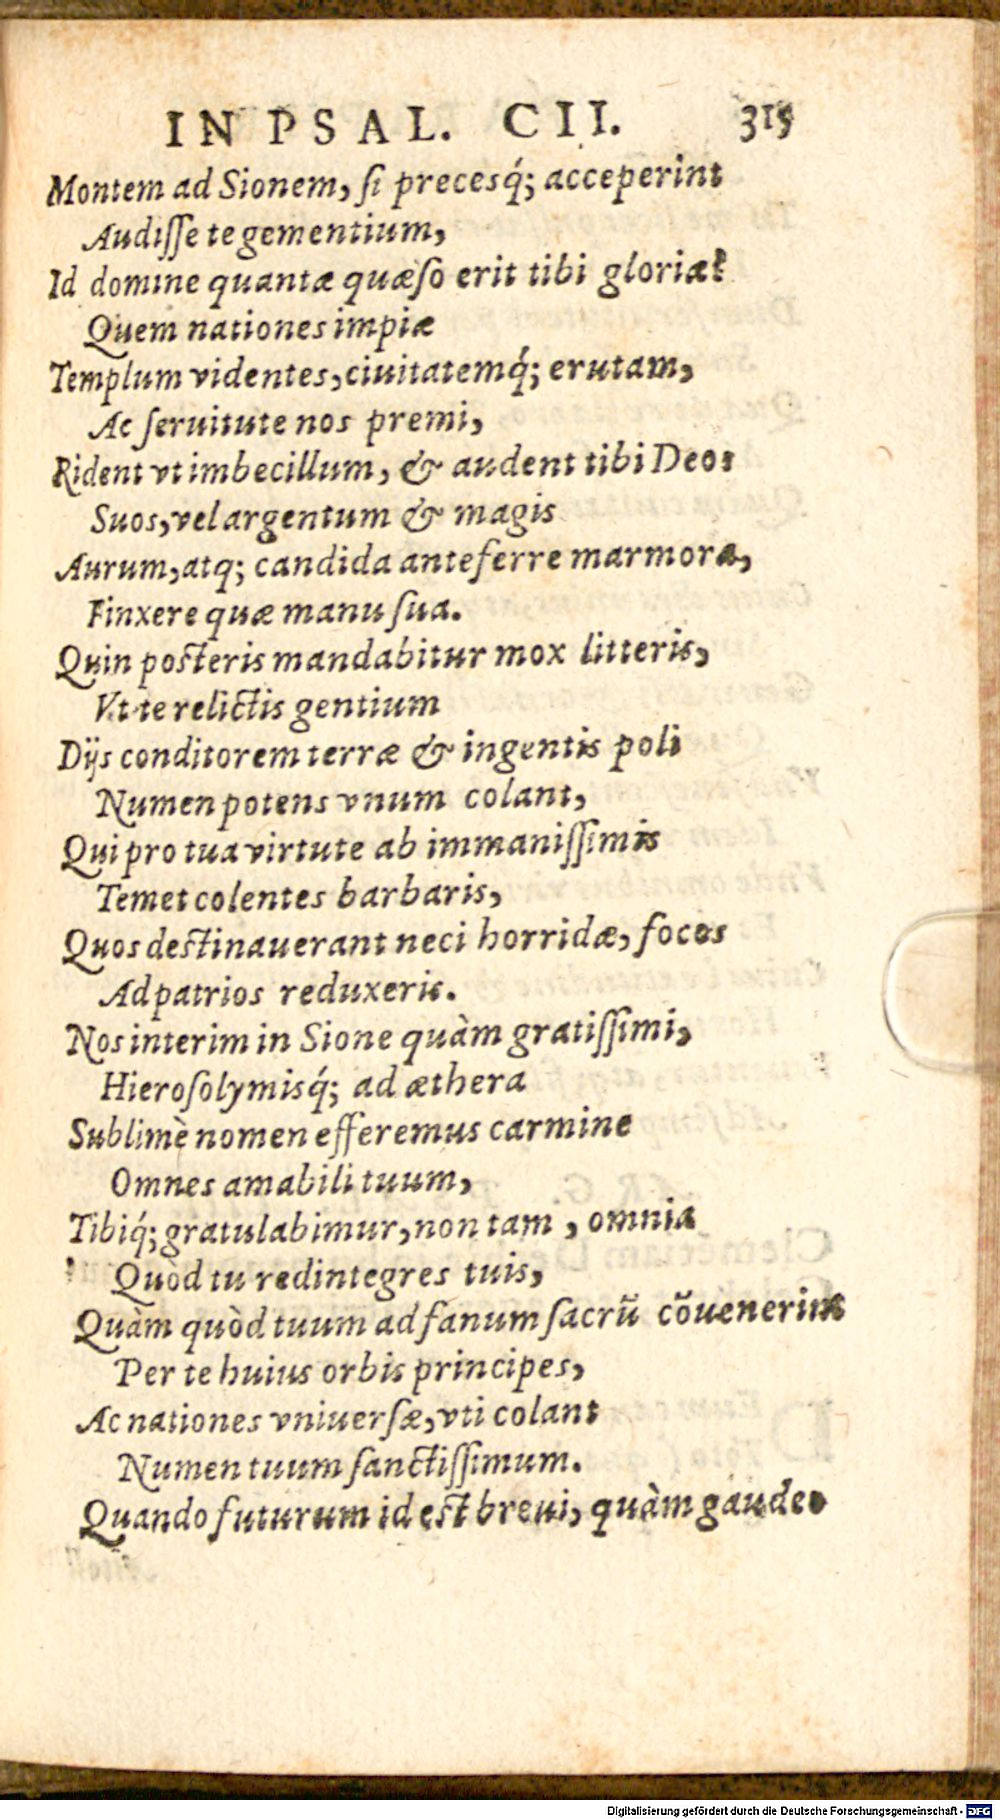 IN PSAL. CII. 315
Montem ad Sionem, ſi precesq́; acceperint
Audiſſe te gementium,
Id domine quantæ quæſo erit tibi gloriæ?
Quem nationes impiæ
Templum videntes, ciuitatemq́; erutam,
Ac ſeruitute nos premi,
Rident vt imbecillum, & audent tibi Deos
Suos, vel argentum & magis
Aurum, atq; candida anteferre marmora,
Finxere quæ manu ſua.
Quin poſteris mandabitur mox litteris,
Vt te relictis gentium
Dijs conditorem terræ & ingentis poli
Numen potens vnum colant,
Qui pro tua virtute ab immaniſſimis
Temet colentes barbaris,
Quos deſtinauerant neci horridæ, focos
Ad patrios reduxeris.
Nos interim in Sione quàm gratiſſimi,
Hieroſolymisq́; ad æthera
Sublimè nomen efferemus carmine
Omnes amabili tuum,
Tibiq́; gratulabimur, non tam , omnia
Quòd tu redintegres tuis,
Quàm quòd tuum ad fanum ſacrũ cõuenerint
Per te huius orbis principes,
Ac nationes vniuerſæ, vti colant
Numen tuum ſanctiſſimum.
Quando futurum id eſt breui, quàm gaudeo
Digitalisierung gefördert durch die Deutsche Forschungsgemeinschaft - DFG